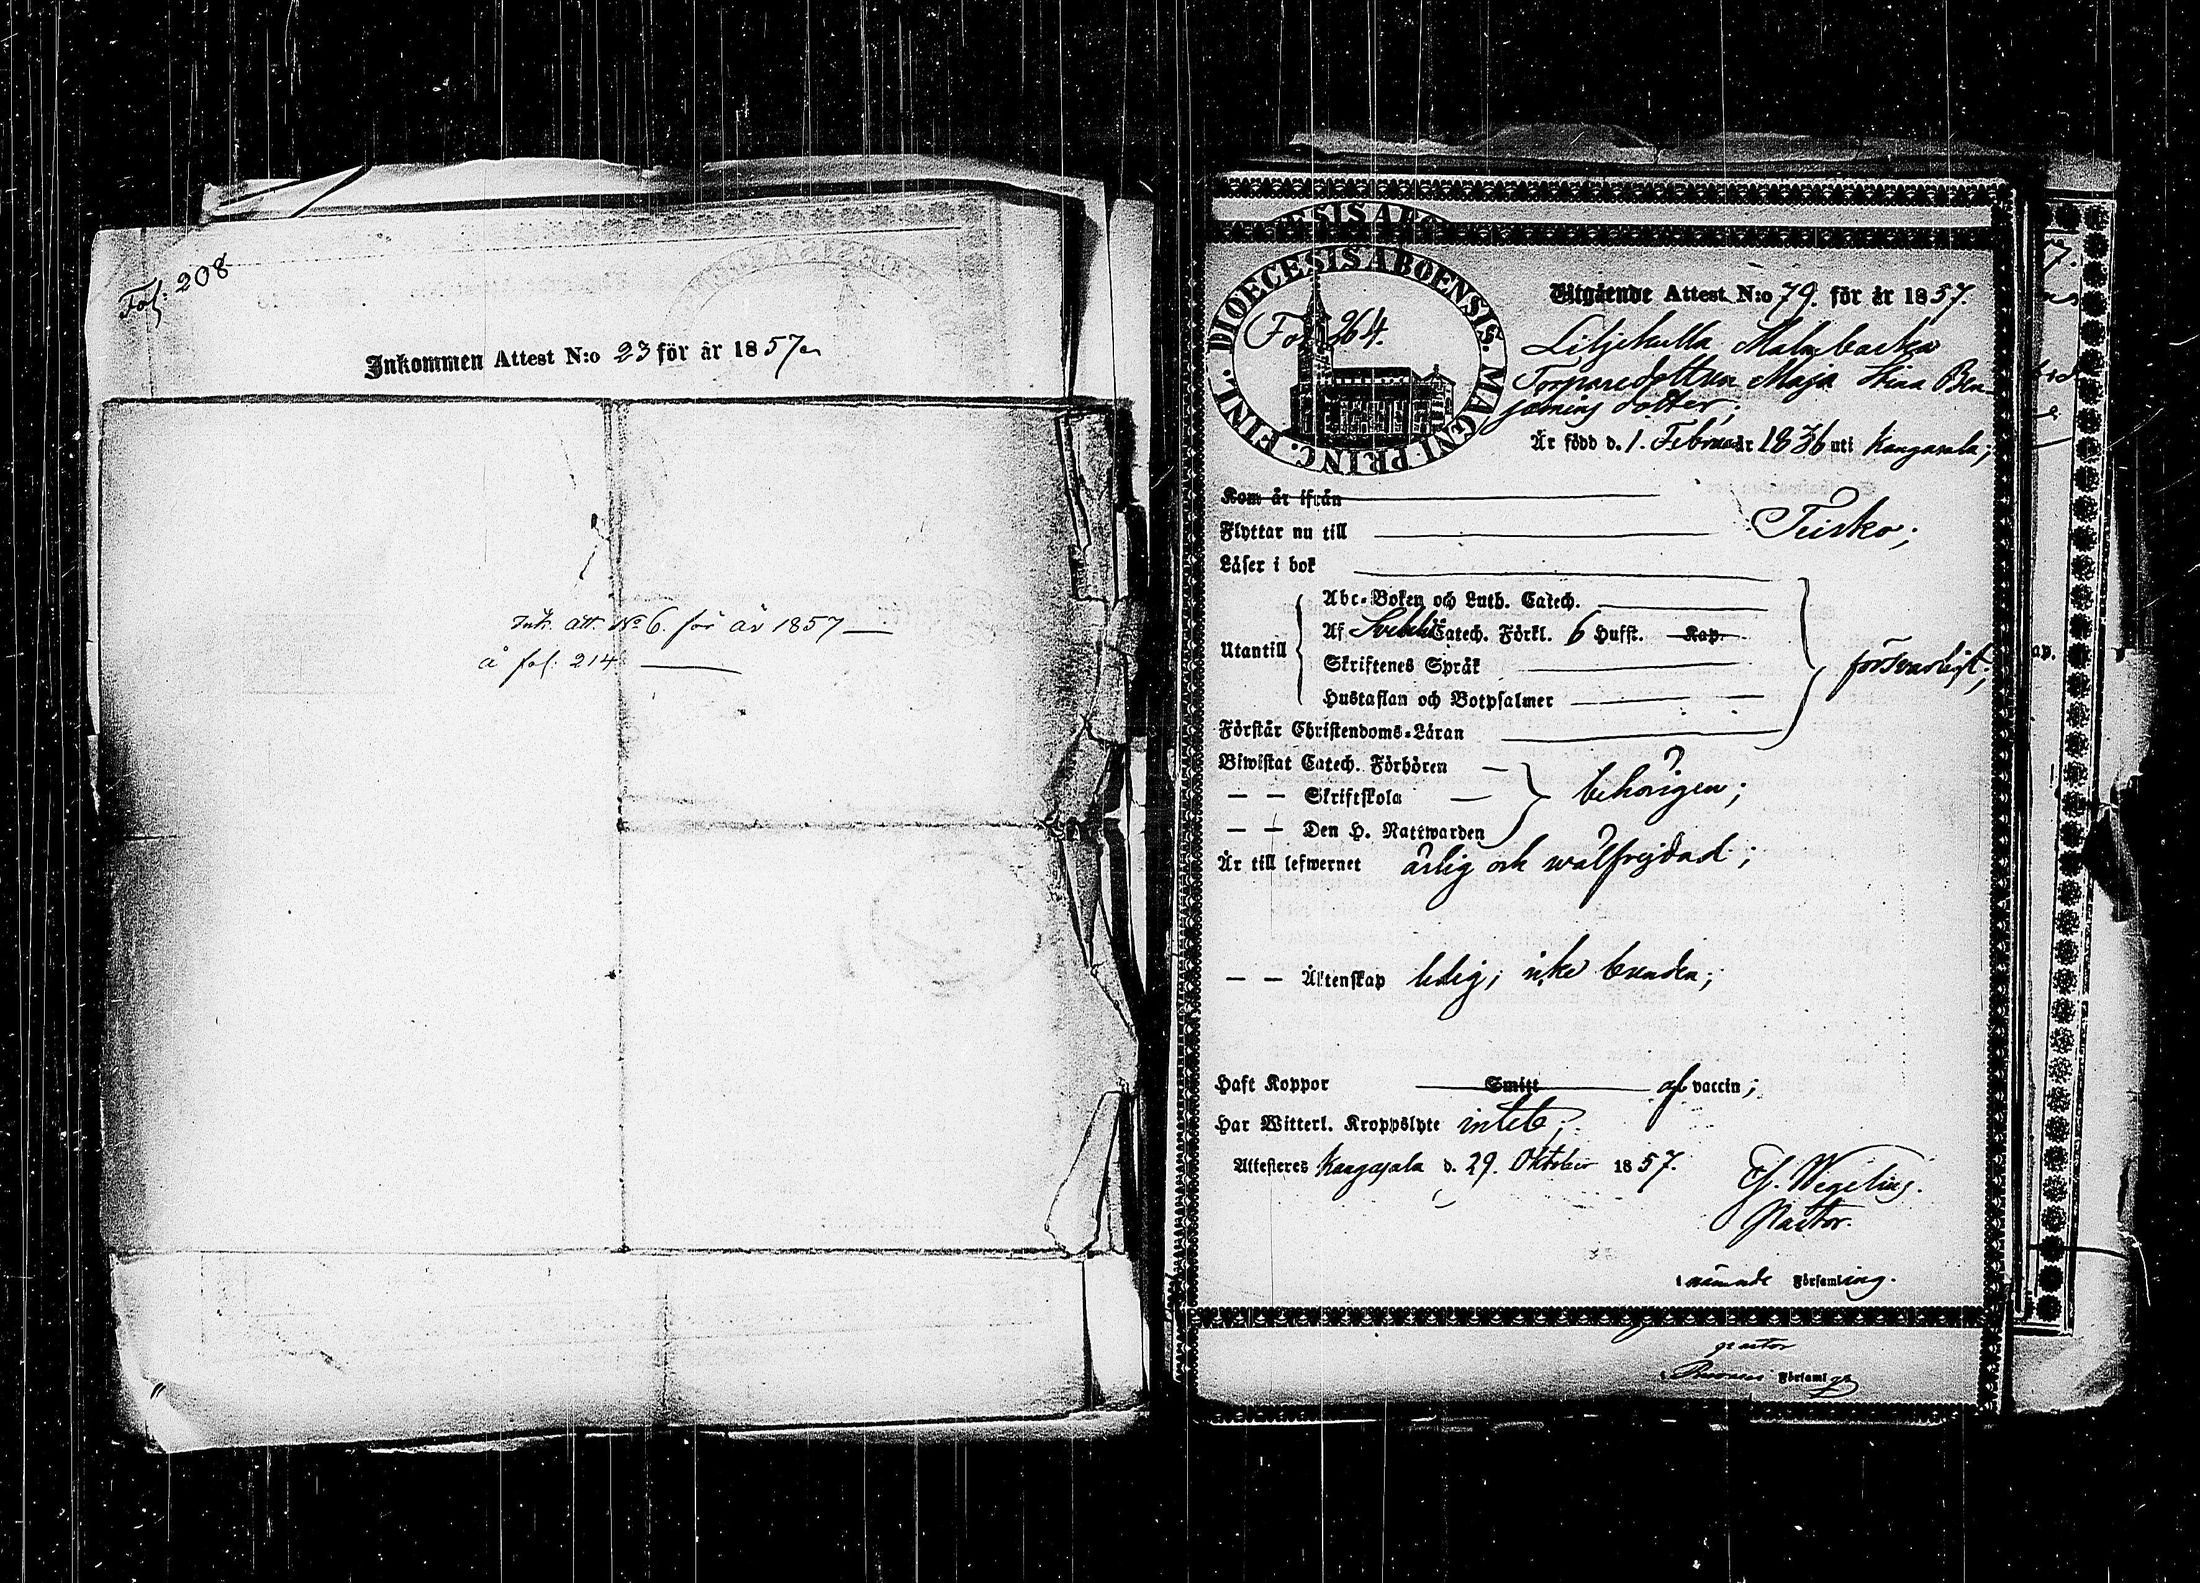 Fol: 208
Inkommen Attest N:o 23 för år 1857
Ink. att. No 6. för år 1857 —
å fol. 214 —
DIOECESIS ABOENSIS. MAGNI PRINC. FINL.
Fol. 264.
Utgående Attest N:o 79. för år 1857.
Liljekulla Malmbacka
Torparedottren Maja Stina Ben-
jamins dotter;
Är född d. 1. Februari 1836 uti Kangasala;
Kom år ifrån
Flyttar nu till Teisko;
Läser i bok
Abc-Boken och Luth. Catech.
Af Svebelii Catech. Förkl. 6 Hufst. Kap.
Utantill
Skriftenes Språk
försvarligt;
Hustaflan och Botpsalmer
Förstår Christendoms-Läran
Biwistat Catech. Förhören
— — Skriftskola behörigen;
— — Den H. Nattwarden
Är till lefwernet ärlig och wälfrejdad;
— — Äktenskap ledig; icke bunden;
Haft Koppor Smitt af vaccin;
Har Witterl. Kroppslyte intet;
Attesteres Kangasala d. 29. Oktober 1857.
Wegelius.
Pastor.
i nämnde Församling.
pastor
i Församl